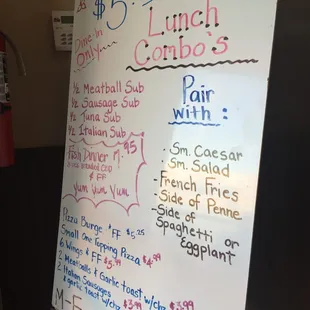 $5.
Lunch
Combo's
Dine in
Only...
Pair
with :
1/2 Meatball Sub
1/2 Sausage Sub
1/2 Tuna Sub
1/2 Italian Sub
Fish Dinner 7.95
Breaded Cod
& FF
Yum Yum Yum
· Sm. Caesar
· Sm. Salad
- French Fries
- Side of Penne
- Side of
Spaghetti or
Eggplant
Pizza Burge & FF $5.25
Small One Topping Pizza $4.99
6 Wings & FF $5.99
2 Meatballs & Garlic toast w/chz $3.99
2 Italian Sausages
& garlic toast w/chz $3.99
M-F